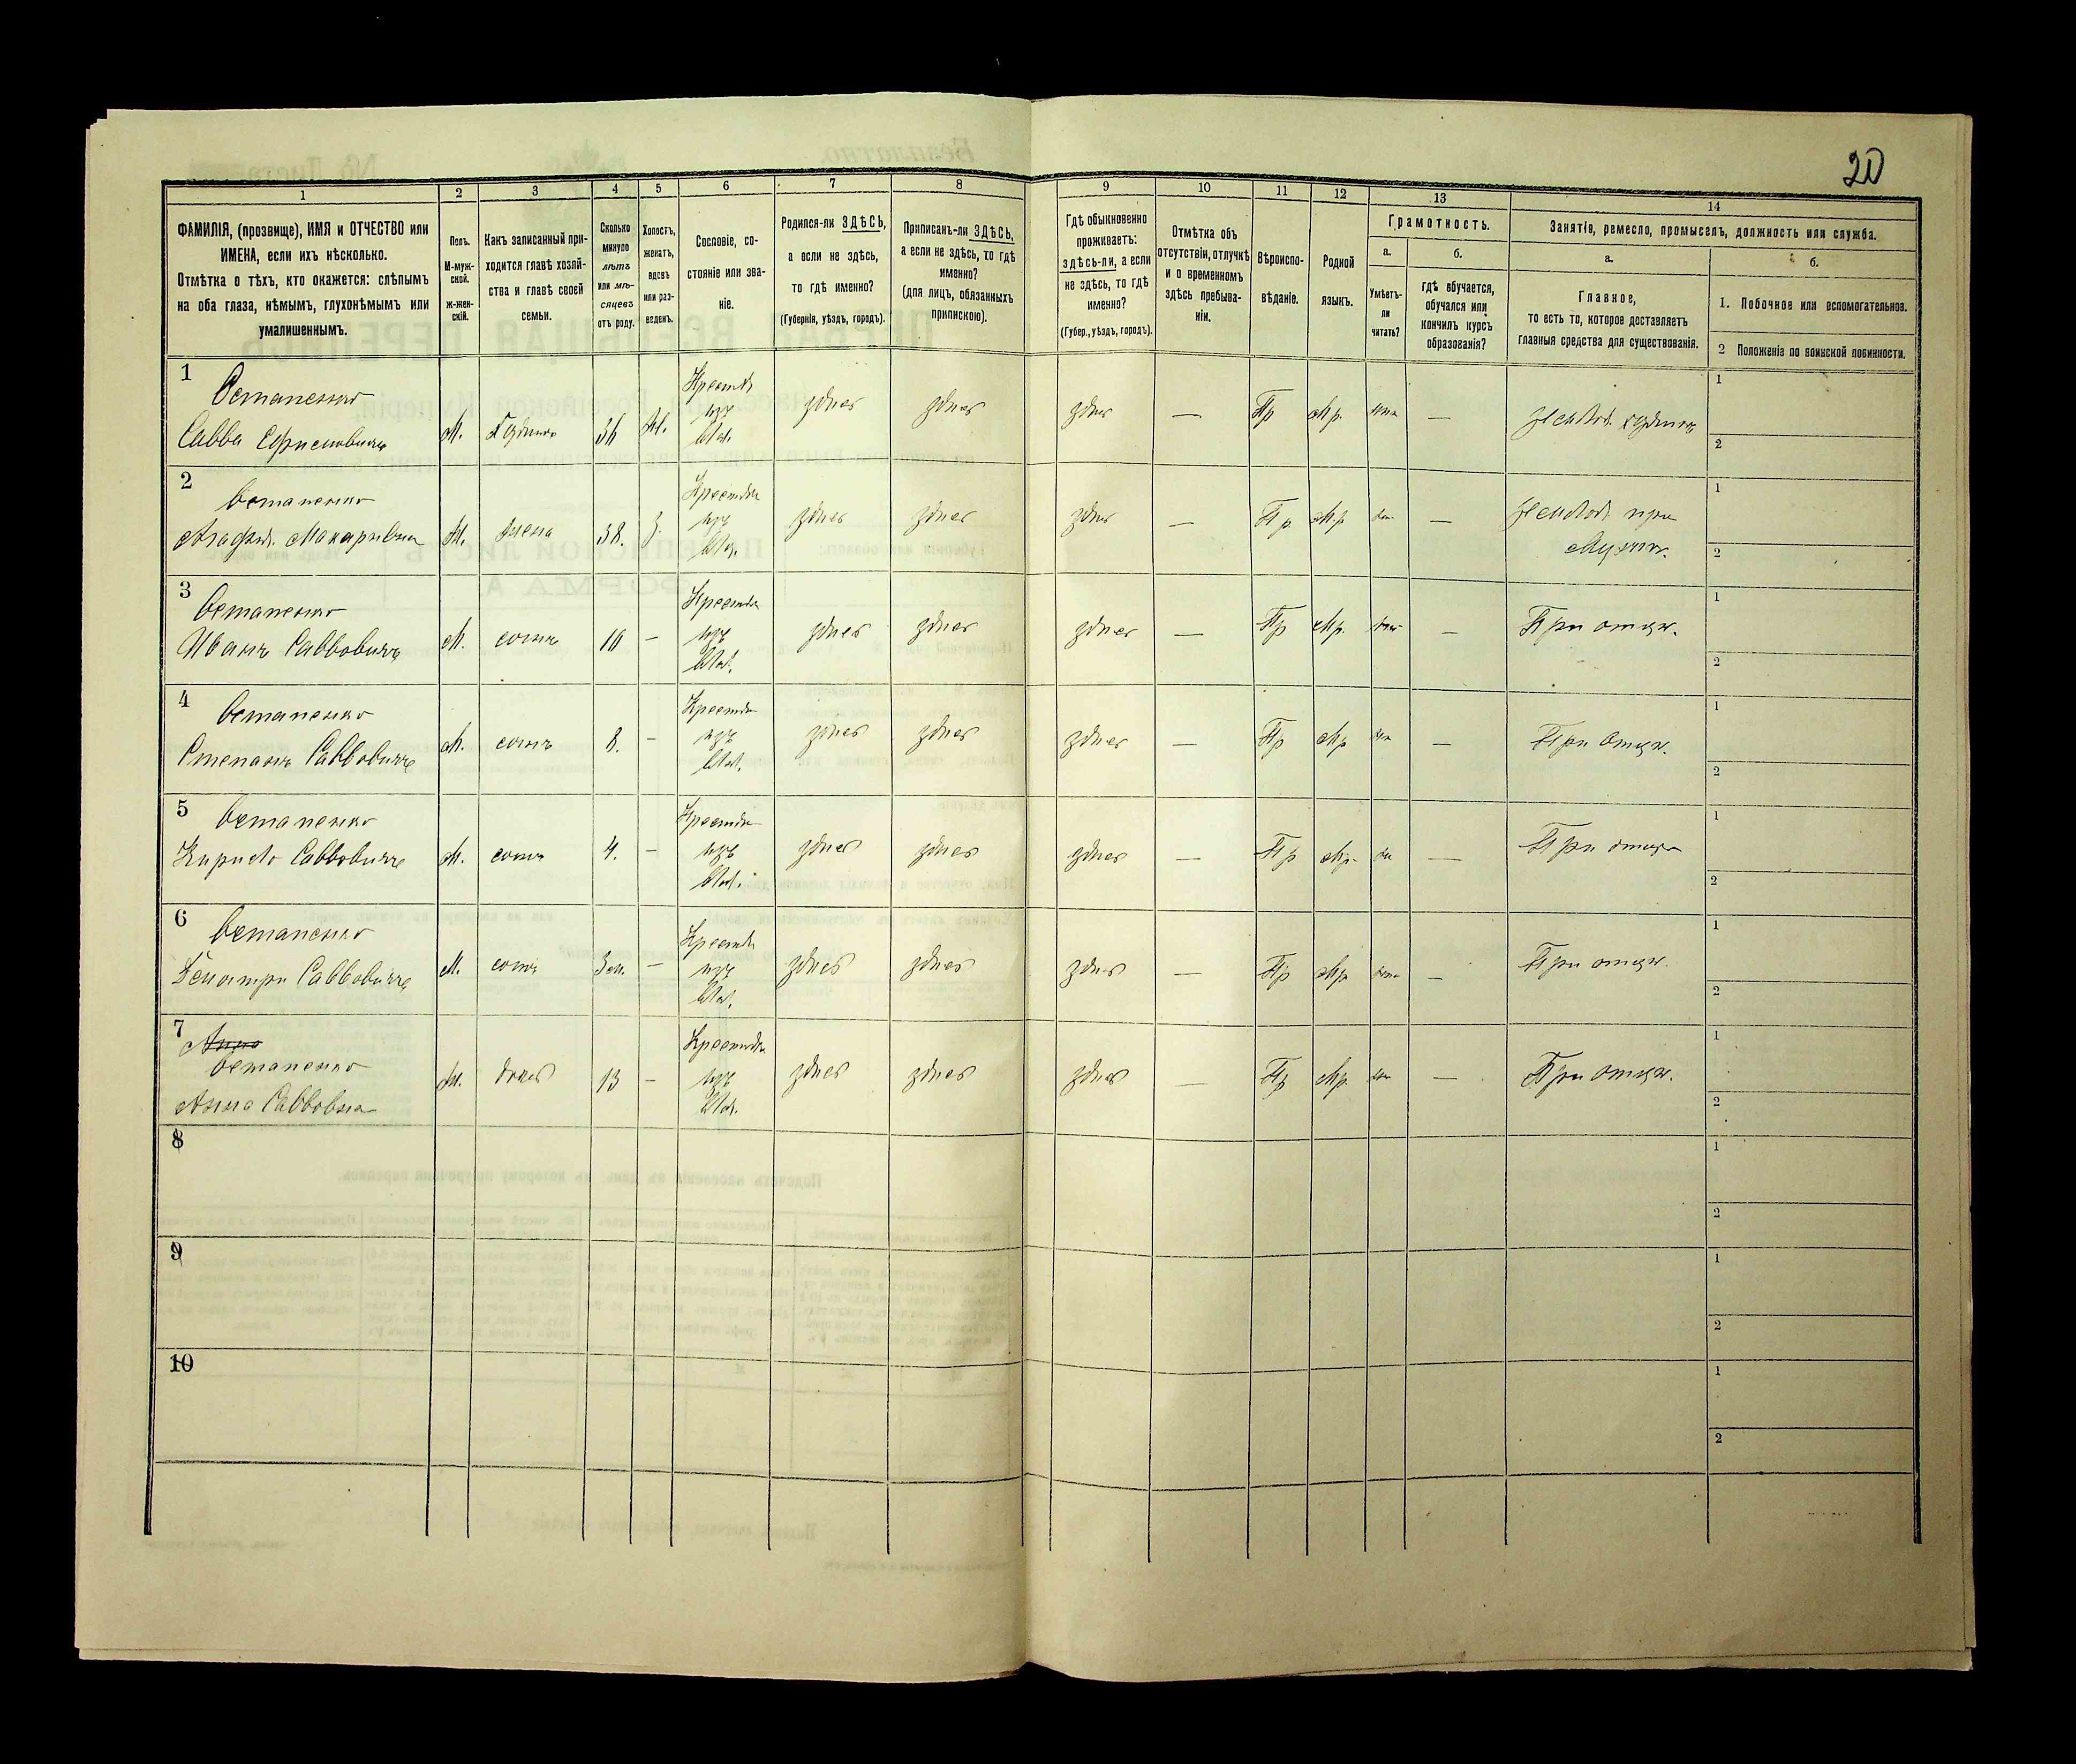 20
1 2 3 4 5 6 7 8 9 10 11 12 13 14
ФАМИЛІЯ, (прозвище), ИМЯ и ОТЧЕСТВО или
ИМЕНА, если ихъ нѣсколько.
Отмѣтка о тѣхъ, кто окажется: слѣпымъ
на оба глаза, нѣмымъ, глухонѣмымъ или
умалишеннымъ.
Полъ.
М-муж-
ской.
ж-жен-
скій.
Какъ записанный при-
ходится главѣ хозяй-
ства и главѣ своей
семьи.
Сколько
минуло
лѣтъ
или мѣ-
сяцевъ
отъ роду.
Холостъ,
женатъ,
вдовъ
или раз-
веденъ.
Сословіе, со-
стояніе или зва-
ніе.
Родился-ли ЗДѢСЬ,
а если не здѣсь,
то гдѣ именно?
(Губернія, уѣздъ, городъ).
Приписанъ-ли ЗДѢСЬ,
а если не здѣсь, то гдѣ
именно?
(для лицъ, обязанныхъ
припискою).
Гдѣ обыкновенно
проживаетъ:
здѣсь-ли, а если
не здѣсь, то гдѣ
именно?
(Губер., уѣздъ, городъ).
Отмѣтка объ
отсутствіи, отлучкѣ
и о временномъ
здѣсь пребыва-
ніи.
Вѣроиспо-
вѣданіе.
Родной
языкъ.
Грамотность.
а.
Умѣетъ-
ли
читать?
б.
гдѣ обучается,
обучался или
кончилъ курсъ
образованія?
Занятіе, ремесло, промыселъ, должность или служба.
а.
Главное,
то есть то, которое доставляетъ
главныя средства для существованія.
б.
1. Побочное или вспомогательное.
2 Положеніе по воинской повинности.
1
Остапенко
Савва
М.
Крест.
изъ
здѣсь здѣсь здѣсь — Пр Мр. —
1
2
2
Остапенко
Макаровна
жена 38 З.
Крестьян
изъ
здѣсь здѣсь здѣсь — Пр Мр —
при
мужѣ.
1
2
3
Остапенко
Иванъ Саввовичъ
М. сынъ —
Крестьян
изъ
здѣсь здѣсь здѣсь — Пр Мр. —
При отцѣ.
1
2
4
Остапенко
Степанъ Саввовичъ
М. сынъ 8. —
Крестьян
изъ
здѣсь здѣсь здѣсь — Пр Мр —
При отцѣ.
1
2
5
Остапенко
Кирило Саввовичъ
М. сынъ 4. —
Крестьян
изъ
здѣсь здѣсь здѣсь — Пр Мр. —
При отцѣ
1
2
6
Остапенко
Саввовичъ
М. сынъ 3 м. —
Крестьян
изъ
здѣсь здѣсь здѣсь — Пр Мр —
При отцѣ.
1
2
7
Анна
Остапенко
Анна Саввовна
дочь 13 —
Крестьян
изъ
здѣсь здѣсь здѣсь — Пр Мр —
При отцѣ.
1
2
8
1
2
9
1
2
10
1
2